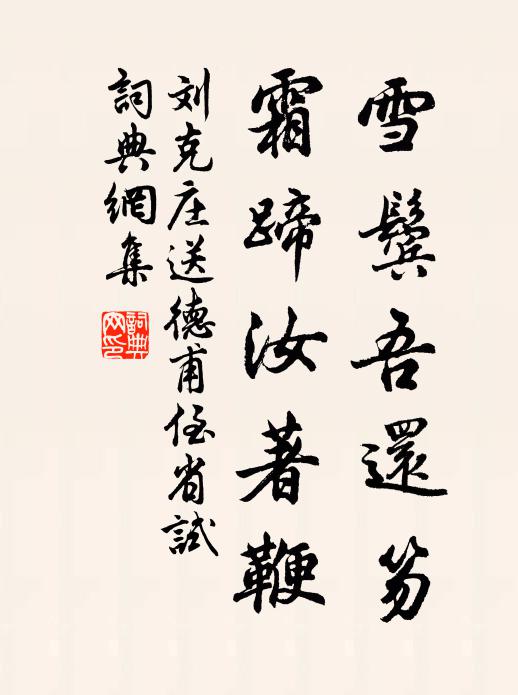 雪鬓吾還笏
霜蹄汝著鞭
刘克庄送德甫侄省試
詞典網集
詞典网印